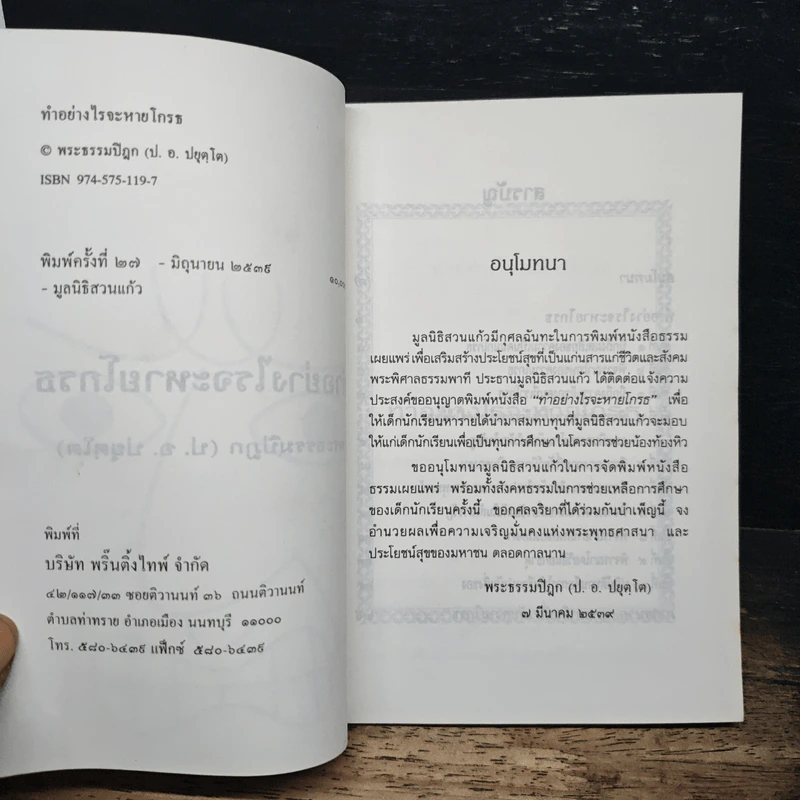 ทำอย่างไรจะหายโกรธ
© พระธรรมปิฎก (ป. อ. ปยุตฺโต)
ISBN 974-575-119-7
พิมพ์ครั้งที่ ๒๗ - มิถุนายน ๒๕๓๙
- มูลนิธิสวนแก้ว ๑๐,๐๐
พิมพ์ที่
บริษัท พริ๊นติ้งไทพ์ จำกัด
๔๒/๑๑๗/๓๓ ซอยติวานนท์ ๓๖ ถนนติวานนท์
ตำบลท่าทราย อำเภอเมือง นนทบุรี ๑๑๐๐๐
โทร. ๕๘๐-๖๔๓๙ แฟ็กซ์ ๕๘๐-๖๔๓๙
อนุโมทนา
มูลนิธิสวนแก้วมีกุศลฉันทะในการพิมพ์หนังสือธรรม
เผยแพร่ เพื่อเสริมสร้างประโยชน์สุขที่เป็นแก่นสารแก่ชีวิตและสังคม
พระพิศาลธรรมพาที ประธานมูลนิธิสวนแก้ว ได้ติดต่อแจ้งความ
ประสงค์ขออนุญาตพิมพ์หนังสือ "ทำอย่างไรจะหายโกรธ" เพื่อ
ให้เด็กนักเรียนหารายได้นำมาสมทบทุนที่มูลนิธิสวนแก้วจะมอบ
ให้แก่เด็กนักเรียนเพื่อเป็นทุนการศึกษาในโครงการช่วยน้องท้องหิว
ขออนุโมทนามูลนิธิสวนแก้วในการจัดพิมพ์หนังสือ
ธรรมเผยแพร่ พร้อมทั้งสังคหธรรมในการช่วยเหลือการศึกษา
ของเด็กนักเรียนครั้งนี้ ขอกุศลจริยาที่ได้ร่วมกันบำเพ็ญนี้ จง
อำนวยผลเพื่อความเจริญมั่นคงแห่งพระพุทธศาสนา และ
ประโยชน์สุขของมหาชน ตลอดกาลนาน
พระธรรมปิฎก (ป. อ. ปยุตฺโต)
๗ มีนาคม ๒๕๓๙